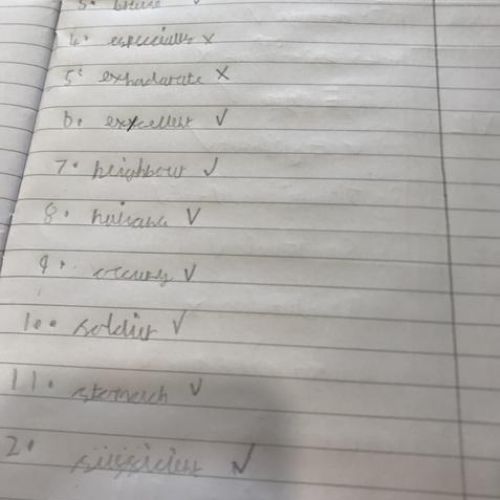 4. especially x
5. exhadarate x
6. excellent ✓
7. neighbour ✓
8. nuisance ✓
9. occupy ✓
10. soldier ✓
11. stomach ✓
2. ✓